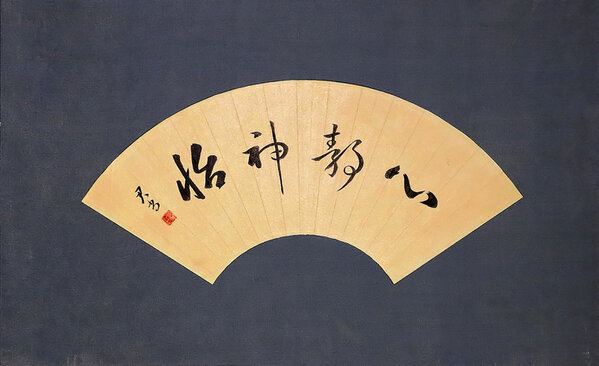 心静神怡